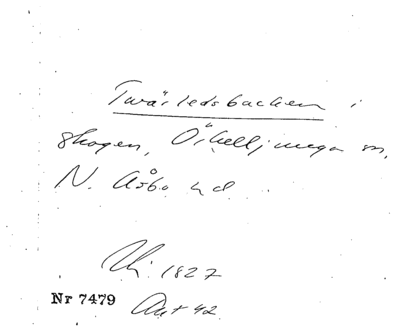 Twärledsbacken i
skogen, Örkelljunga sn,
N. Åsbo hd.
1827
Nr 7479